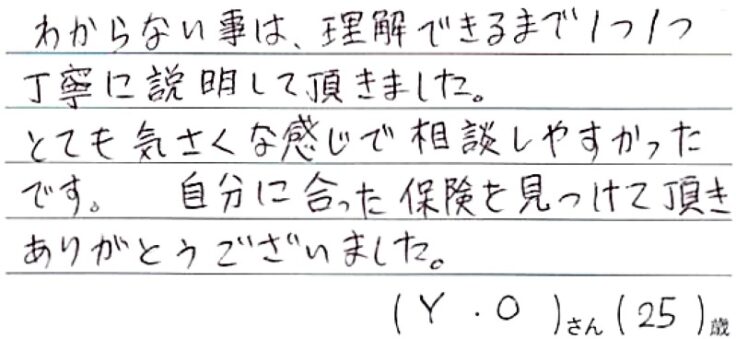 わからない事は、理解できるまで1つ1つ
丁寧に説明して頂きました。
とても気さくな感じで相談しやすかった
です。 自分に合った保険を見つけて頂き
ありがとうございました。
(Y.O)さん(25)歳